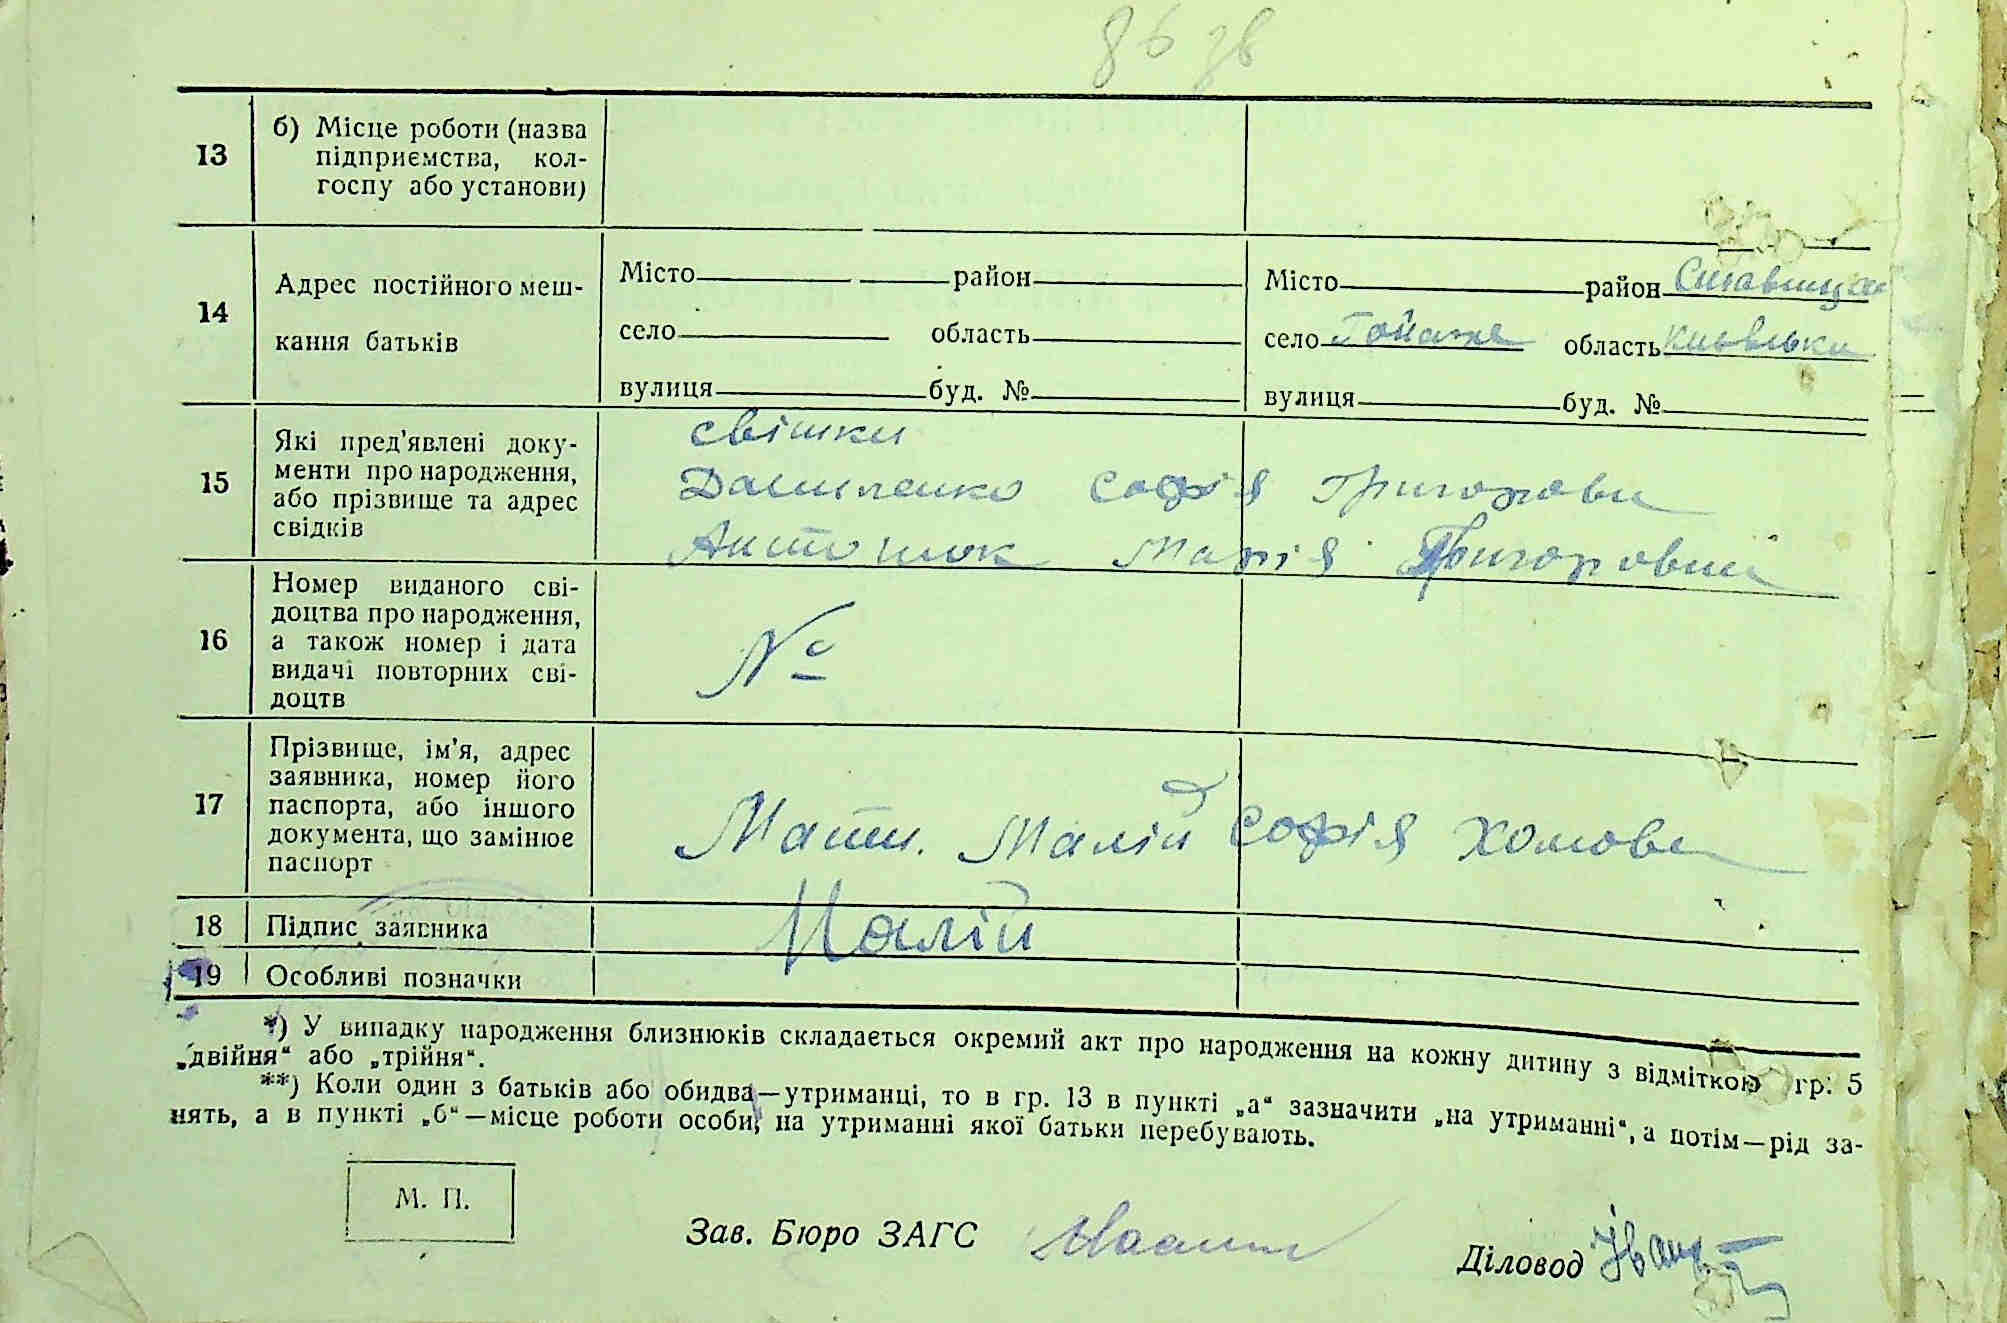 86 зв
13
б) Місце роботи (назва
підприємства, кол-
госпу або установи)
14
Адрес постійного меш-
кання батьків
Місто район
село область
вулиця буд. №
Місто район Ставищан
село Гойаже область Київська
вулиця буд. №
15
Які пред'явлені доку-
менти про народження,
або прізвище та адрес
свідків
свішки
Даниленко Софія Григорови
Антонюк Марія Григоровни
16
Номер виданого сві-
доцтва про народження,
а також номер і дата
видачі повторних сві-
доцтв
№
17
Прізвище, ім'я, адрес
заявника, номер його
паспорта, або іншого
документа, що замінює
паспорт
Мати. Малій Софія Хомовн
18
Підпис заявника
Малій
19
Особливі позначки
*) У випадку народження близнюків складається окремий акт про народження на кожну дитину з відміткою гр. 5
„двійня“ або „трійня“.
**) Коли один з батьків або обидва—утриманці, то в гр. 13 в пункті „а“ зазначити „на утриманні“, а потім—рід за-
нять, а в пункті „б“—місце роботи особи, на утриманні якої батьки перебувають.
М. П.
Зав. Бюро ЗАГС
Діловод